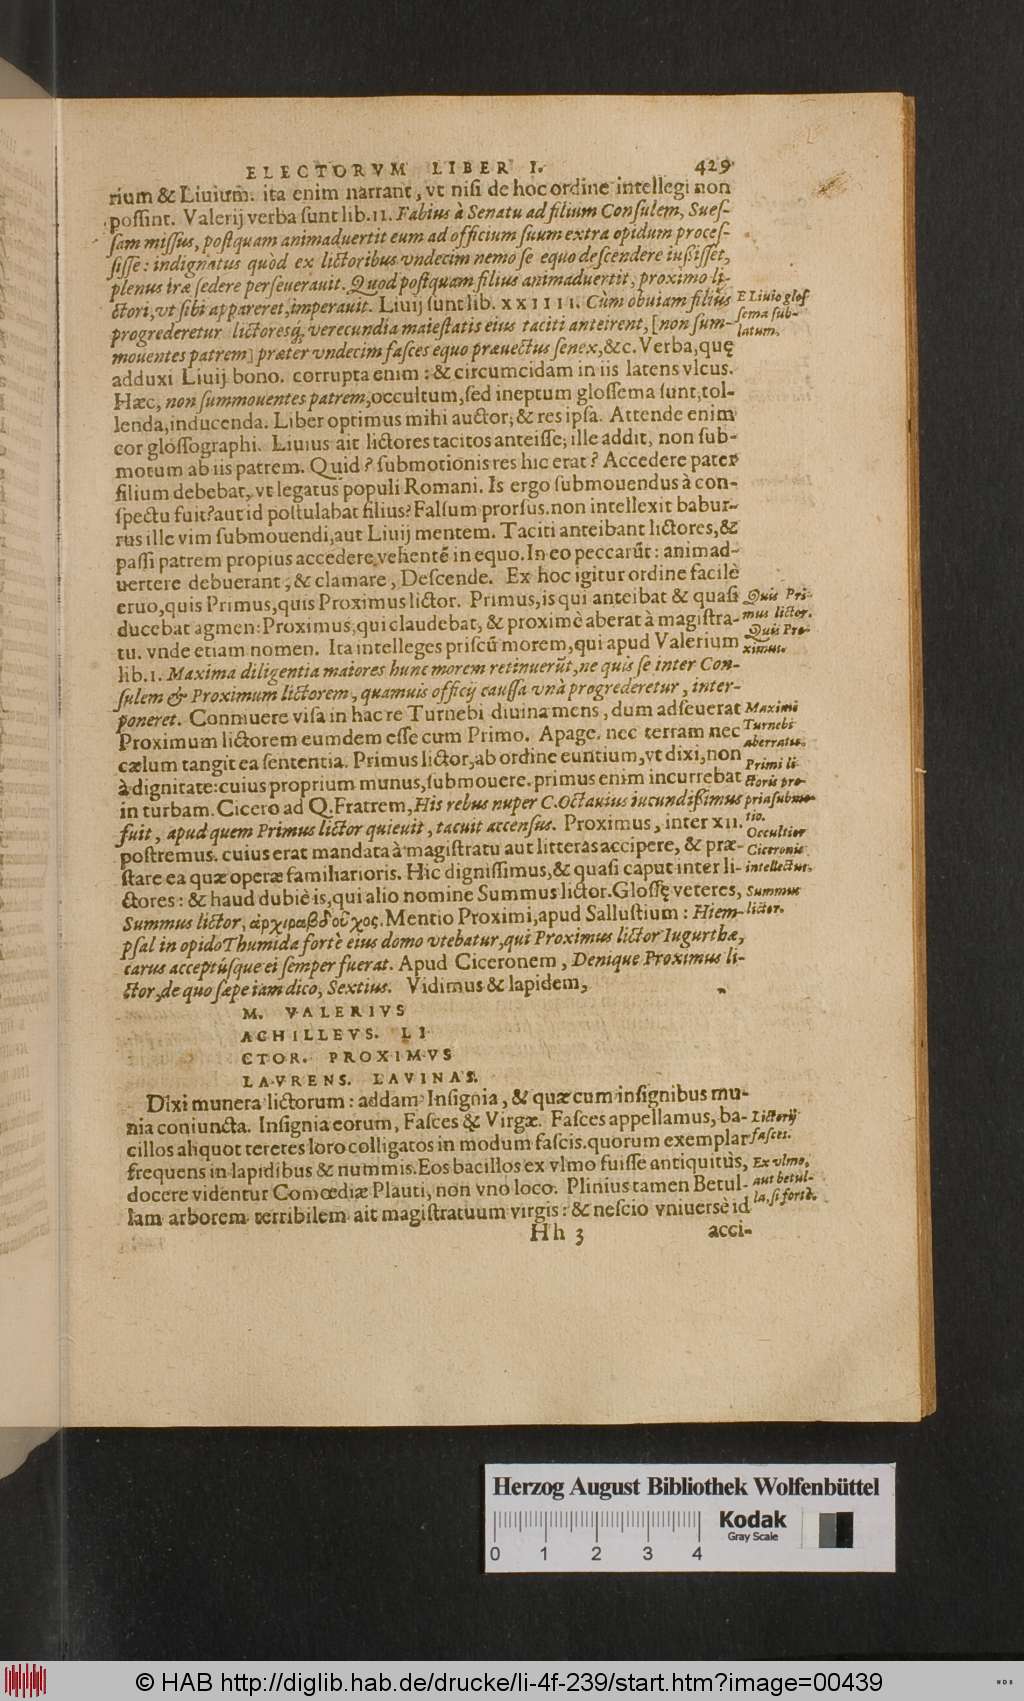 ELECTORVM LIBER I. 429
rium & Liuium. ita enim narrant, vt nisi de hoc ordine intellegi non
possint. Valerij verba sunt lib. 11. Fabius à Senatu ad filium Consulem, Sues-
sam missus, postquam animaduertit eum ad officium suum extra opidum proces-
sisse: indignatus quòd ex lictoribus vndecim nemo se equo descendere iußisset,
plenus iræ sedere perseuerauit. Quod postquam filius animaduertit, proximo li-
ctori, vt sibi appareret, imperauit. Liuij sunt lib. XXIIII. Cùm obuiam filius
E Liuio glos
progrederetur lictoresq́, verecundia maiestatis eius taciti anteirent, [non sum-
sema sub-
mouentes patrem] præter vndecim fasces equo præuectus senex, &c. Verba, quę
latum.
adduxi Liuij bono. corrupta enim: & circumcidam in iis latens vlcus.
Hæc, non summouentes patrem, occultum, sed ineptum glossema sunt, tol-
lenda, inducenda. Liber optimus mihi auctor, & res ipsa. Attende enim
cor glossographi. Liuius ait lictores tacitos anteisse; ille addit, non sub-
motum ab iis patrem. Quid? submotionis res hic erat? Accedere pater
filium debebat, vt legatus populi Romani. Is ergo submouendus à con-
spectu fuit? aut id postulabat filius? Falsum prorsus. non intellexit babur-
rus ille vim submouendi, aut Liuij mentem. Taciti anteibant lictores, &
passi patrem propius accedere vehentẽ in equo. In eo peccarũt: animad-
uertere debuerant, & clamare, Descende. Ex hoc igitur ordine facilè
eruo, quis Primus, quis Proximus lictor. Primus, is qui anteibat & quasi
Quis Pri-
ducebat agmen: Proximus, qui claudebat, & proximè aberat à magistra-
mus lictor.
Quis Pro-
tu. vnde etiam nomen. Ita intelleges priscũ morem, qui apud Valerium
ximus.
lib. 1. Maxima diligentia maiores hunc morem retinuerũt, ne quis se inter Con-
sulem & Proximum lictorem, quamuis officij caussa vnà progrederetur, inter-
poneret. Conniuere visa in hac re Turnebi diuina mens, dum adseuerat
Maximè
Proximum lictorem eumdem esse cum Primo. Apage. nec terram nec
Turnebi
aberratio.
cælum tangit ea sententia. Primus lictor, ab ordine euntium, vt dixi, non
Primi li-
à dignitate: cuius proprium munus, submouere. primus enim incurrebat
ctoris pro-
in turbam. Cicero ad Q. Fratrem, His rebus nuper C. Octauius iucundißimus
pria submo-
fuit, apud quem Primus lictor quieuit, tacuit accensus. Proximus, inter XII.
tio.
Occultior
postremus. cuius erat mandata à magistratu aut litteras accipere, & præ-
Ciceronis
stare ea quæ operæ familiarioris. Hic dignissimus, & quasi caput inter li-
intellectus.
ctores: & haud dubiè is, qui alio nomine Summus lictor. Glossę veteres,
Summus
Summus lictor, ἀρχιραβδοῦχος. Mentio Proximi, apud Sallustium: Hiem-
lictor.
psal in opido Thumida fortè eius domo vtebatur, qui Proximus lictor Iugurthæ,
carus acceptúsque ei semper fuerat. Apud Ciceronem, Denique Proximus li-
ctor, de quo sæpe iam dico, Sextius. Vidimus & lapidem,
M. VALERIVS
ACHILLEVS. LI
CTOR. PROXIMVS
LAVRENS. LAVINAS.
Dixi munera lictorum: addam Insignia, & quæ cum insignibus mu-
nia coniuncta. Insignia eorum, Fasces & Virgæ. Fasces appellamus, ba-
Lictorij
cillos aliquot teretes loro colligatos in modum fascis. quorum exemplar
fasces.
frequens in lapidibus & nummis. Eos bacillos ex vlmo fuisse antiquitùs,
Ex vlmo,
docere videntur Comœdiæ Plauti, non vno loco. Plinius tamen Betul-
aut betul-
lam arborem terribilem ait magistratuum virgis: & nescio vniuersè id
la, si fortè.
Hh 3 acci-
Herzog August Bibliothek Wolfenbüttel
0 1 2 3 4
Kodak
Gray Scale
© HAB http://diglib.hab.de/drucke/li-4f-239/start.htm?image=00439